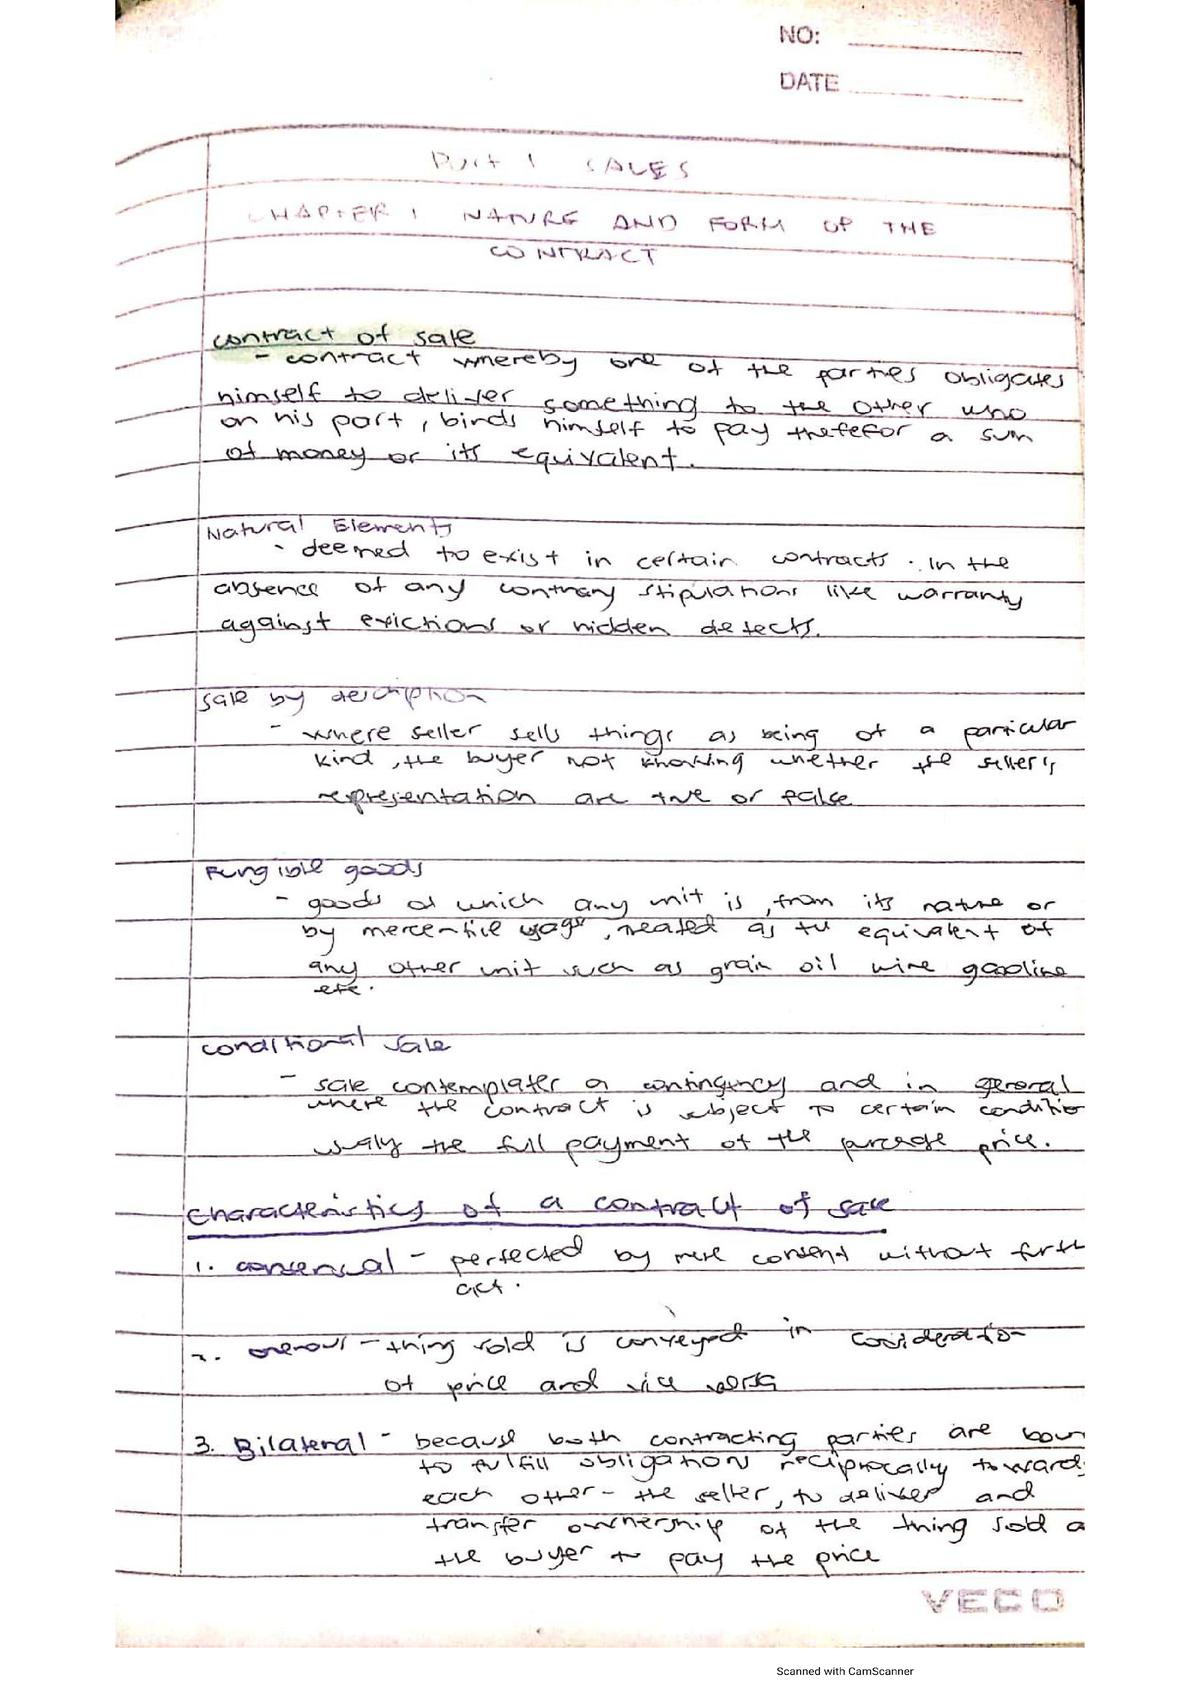 NO:
DATE
Part 1 SALES
CHAPTER 1 NATURE AND FORM OF THE
CONTRACT
contract of sale
- contract whereby one of the parties obligates
himself to deliver something to the other who
on his part, binds himself to pay thefefor a sum
of money or its equivalent.
Natural Elements
- deemed to exist in certain contracts. In the
absence of any contrary stipulations like warranty
against evictions or hidden defects.
Sale by description
- where seller sells things as being of a particular
kind, the buyer not knowing whether the seller's
representation are true or false
Fungible goods
- goods of which any unit is, from its nature or
by mercentile usage, treated as the equivalent of
any other unit such as grain oil wine gasoline
etc.
Conditional Sale
- sale contemplates a contingency and in general
where the contract is subject to certain conditio
usualy the full payment of the purchase price.
Characteristics of a contract of sale
1. consensual - perfected by mere consent without furth
act.
2. onerous - thing sold is conveyed in consideration
of price and vice versa
3. Bilateral - because both contracting parties are boun
to fulfill obligation reciprocally toward
each other - the seller, to deliver and
transfer ownership of the thing sold a
the buyer to pay the price
VECO
Scanned with CamScanner